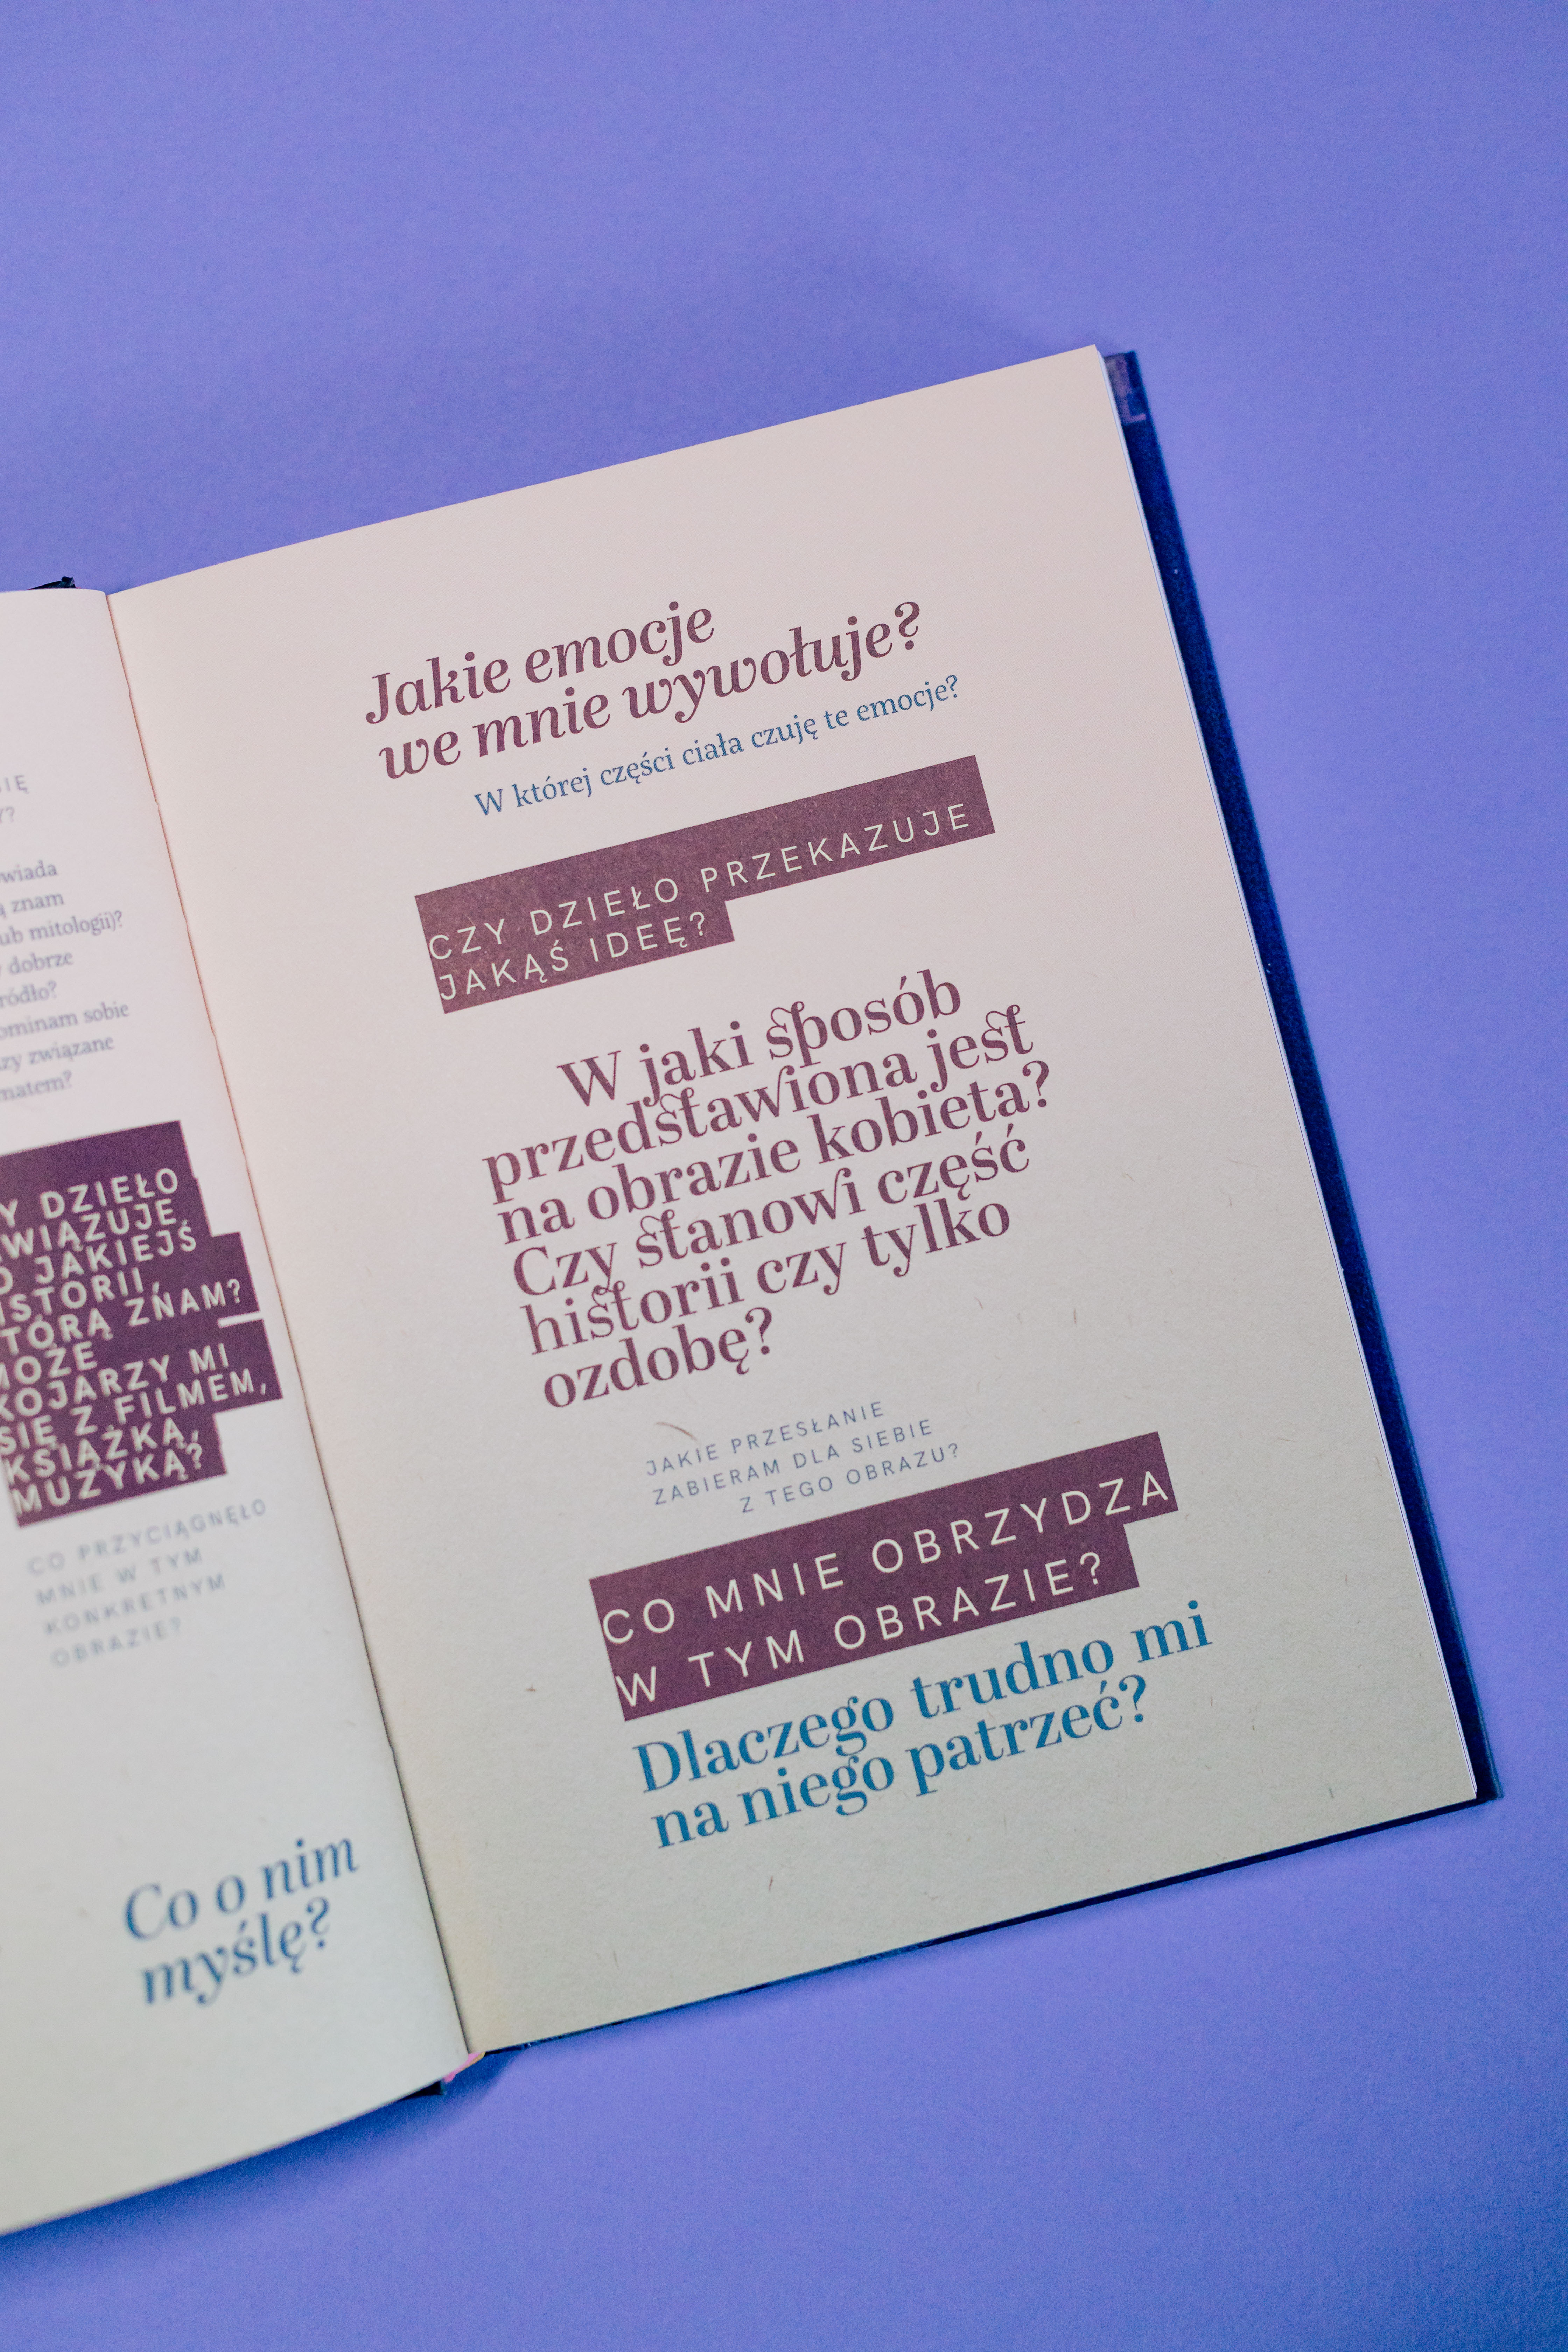 znam
mitologii)?
dobrze
sobie
związane
DZIEŁO
JAKIEJŚ
ZNAM?
MI
SIĘ Z FILMEM,
KSIĄŻKĄ,
MUZYKĄ?
CO PRZYCIĄGNĘŁO
MNIE W TYM
KONKRETNYM
OBRAZIE?
Co o nim
myślę?
Jakie emocje
we mnie wywołuje?
W której części ciała czuję te emocje?
CZY DZIEŁO PRZEKAZUJE
JAKĄŚ IDEĘ?
W jaki sposób
przedstawiona jest
na obrazie kobieta?
Czy stanowi część
historii czy tylko
ozdobę?
JAKIE PRZESŁANIE
ZABIERAM DLA SIEBIE
Z TEGO OBRAZU?
CO MNIE OBRZYDZA
W TYM OBRAZIE?
Dlaczego trudno mi
na niego patrzeć?